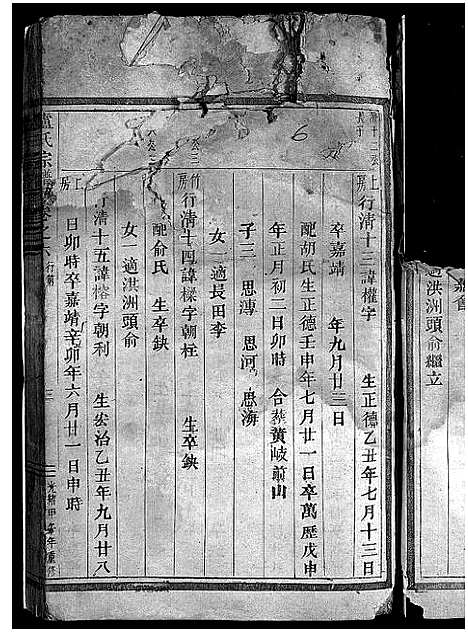 上房行清十三諱權字 生正德乙丑年七月十三日
卒嘉靖 年九月廿三日
配胡氏生正德壬申年七月廿一日卒萬歷戊申
年正月初二日卯時 合葬黃岐前山
子三 思溥 思河 思海
女一適長田李
竹房行清十四諱樑字朝柱 生卒缺
配俞氏 生卒缺
女一適洪洲頭俞
上房行清十五諱榕字朝利 生宏治乙丑年九月廿八
日卯時卒嘉靖辛卯年六月廿一日申時
盧氏宗譜卷之六 行清 光緒甲午年重修
6
適洪洲頭俞繼立